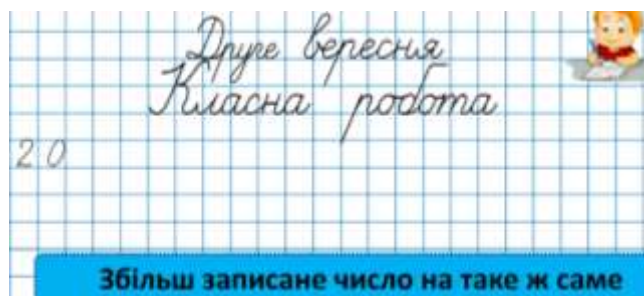 Друге вересня
Класна робота
2 0
Збільш записане число на таке ж саме